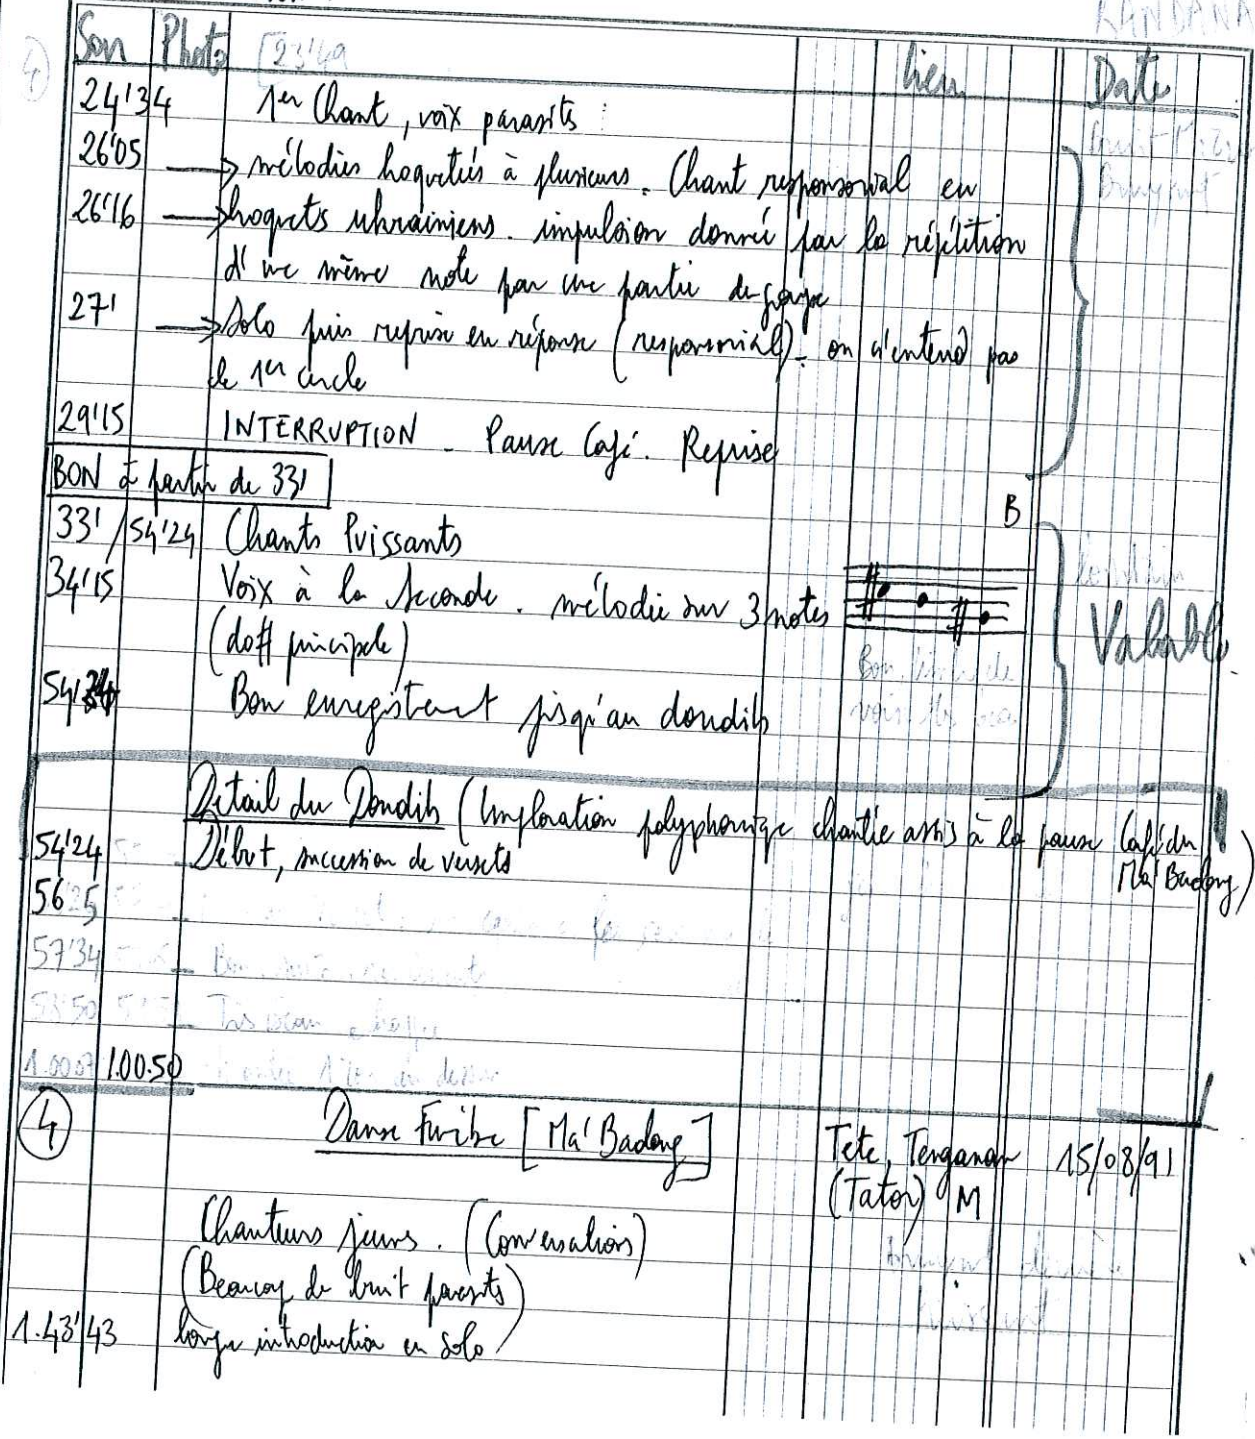 KANDANA
Son Photo [23'49 lieu Date
24'34 1er Chant, voix parasites :
26'05 → mélodies hoquetées à plusieurs. Chant responsorial en
26'16 → hoquets ukrainiens. impulsion donnée par la répétition
d'une même note par une partie du groupe
27' → Solo puis reprise en réponse (responsorial). on n'entend pas
le 1er cercle
29'15 INTERRUPTION - Pause Café. Reprise
BON à partir de 33'
B
33' / 54'24 Chants Puissants
34'15 Voix à la seconde. mélodie sur 3 notes
Valable
(do# principale)
54'24 Bon enregistrement jusqu'au dondih
Détail du Dondih (Imploration polyphonique chantée assis à la pause Café du
Ma'Badong)
54'24 Début, succession de versets
56'25
57'34
58'50
1.00.07 1.00.50
4 Danse Funèbre [Ma'Badong] Tete, Tenganan 15/08/91
(Tator) M
Chanteurs jeunes. (Conversations)
(Beaucoup de bruit parasites)
1.43'43 longue introduction en solo